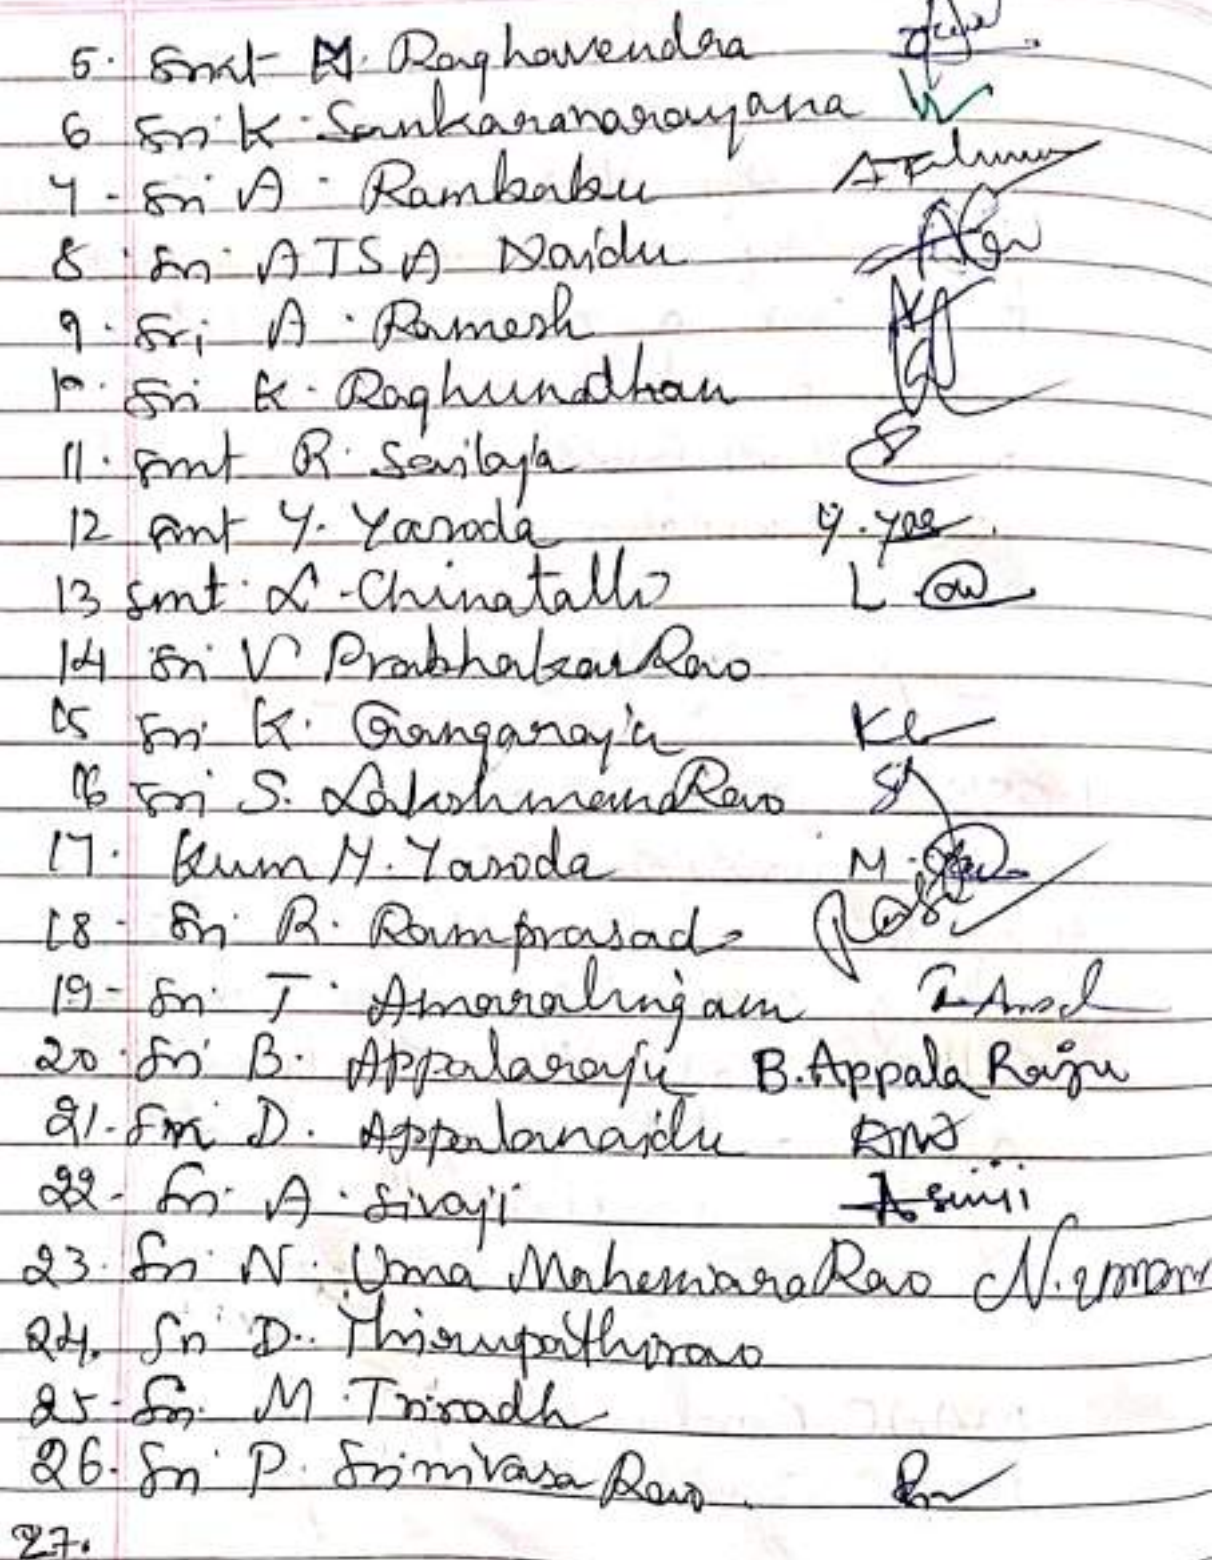 5. Smt M. Raghavendra
6 Sri K. Sankaranarayana
7- Sri A. Rambabu
8. Sri ATSA Naidu
9. Sri A. Ramesh
10. Sri K. Raghunadhan
11. Smt R. Sailaja
12 Smt Y. Yasoda Y. Yas
13 Smt. L. Chinatalli L
14 Sri V Prabhakar Rao
15 Sri K. Gangaraju
16 Sri S. Lakshmana Rao
17. Kum M. Yasoda M.
18- Sri R. Ramprasad
19- Sri T. Amaralingam
20. Sri B. Appalaraju B. Appala Raju
21- Sri D. Appalanaidu
22- Sri A. Sivaji
23. Sri N. Uma Maheswara Rao
24. Sri D. Thirupathirao
25- Sri. M. Trinadh
26. Sri P. Srinivasa Rao.
27.